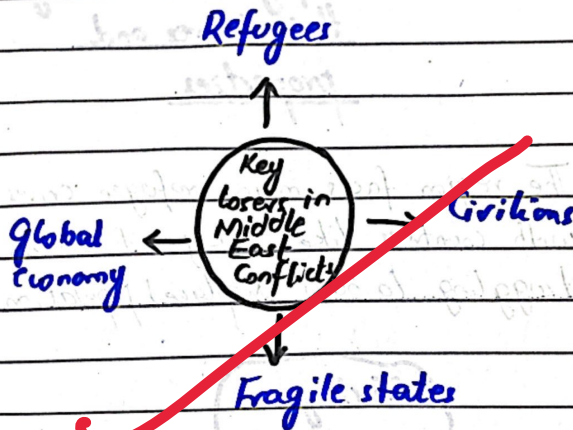 Refugees
Key
losers in
Middle
East
Conflicts
Civilians
Global
economy
Fragile states